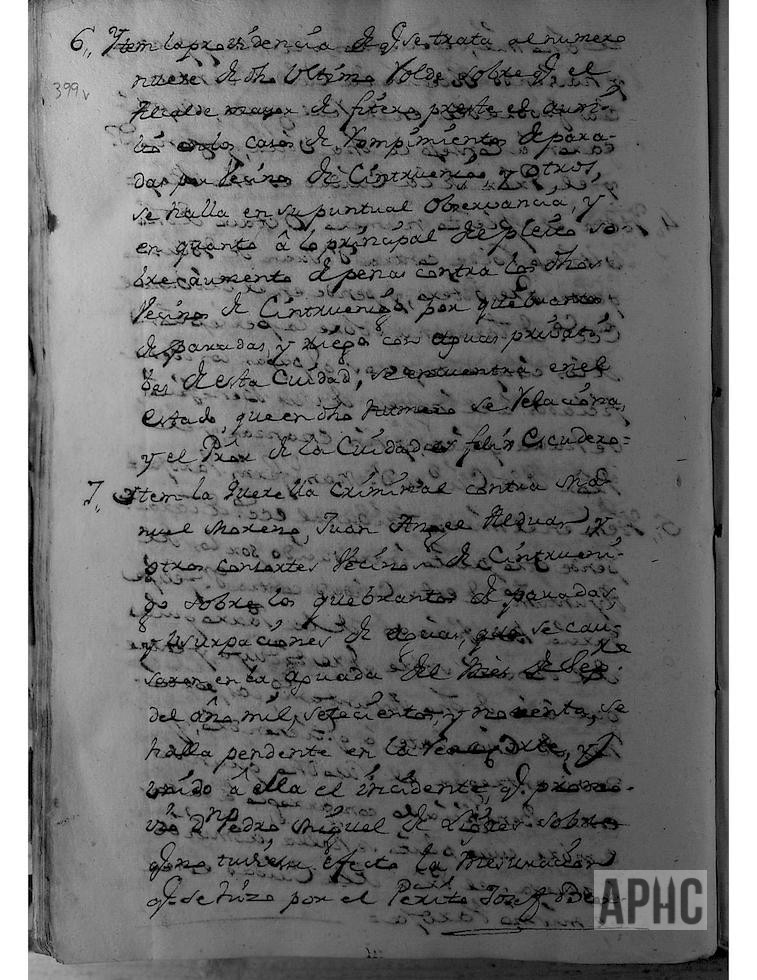 6,, Ytem la providencia de q.e se trata al numero
399v
nueve de dho Ultimo Volde sobre q.e el
Alcalde mayor de fitero preste el auxi-
lio en los casos de Rompimientos de para-
das por Vecinos de Cintruenigo y otros,
se halla en su puntual Observancia, y
en quanto â lo principal del pleito so-
bre aumento de penas contra los dhos
Vecinos de Cintruenigo por quebrantos
de paradas, y riego con aguas privati-
bas de esta Ciudad, se encuentra en el
estado, que en dho Numero se Relaciona,
y el Pror de la Ciudad es felix Escudero =
7,, Ytem la querella Criminal contra Ma-
nuel Moreno, Juan Angel Alduan, y
otros consortes Vecinos de Cintrueni-
go sobre los quebrantos de paradas,
y Usurpaciones de aguas, que se cau-
saron en la aguada del Mes de Sep.re
del año mil, setecientos, y noventa, se
halla pendente en la Real Corte, y
unido â ella el incidente, q.e promo-
vió d.n Pedro Miguel de Ligues sobre
q.e no tuviera efecto la mesuracion
q.e se hizo por el Perito Josef
APHC